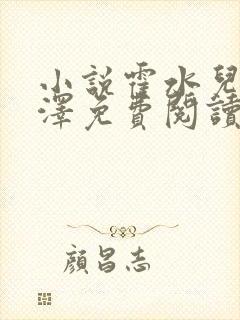 小說霍水兒
澤免費閱讀
顏昌志